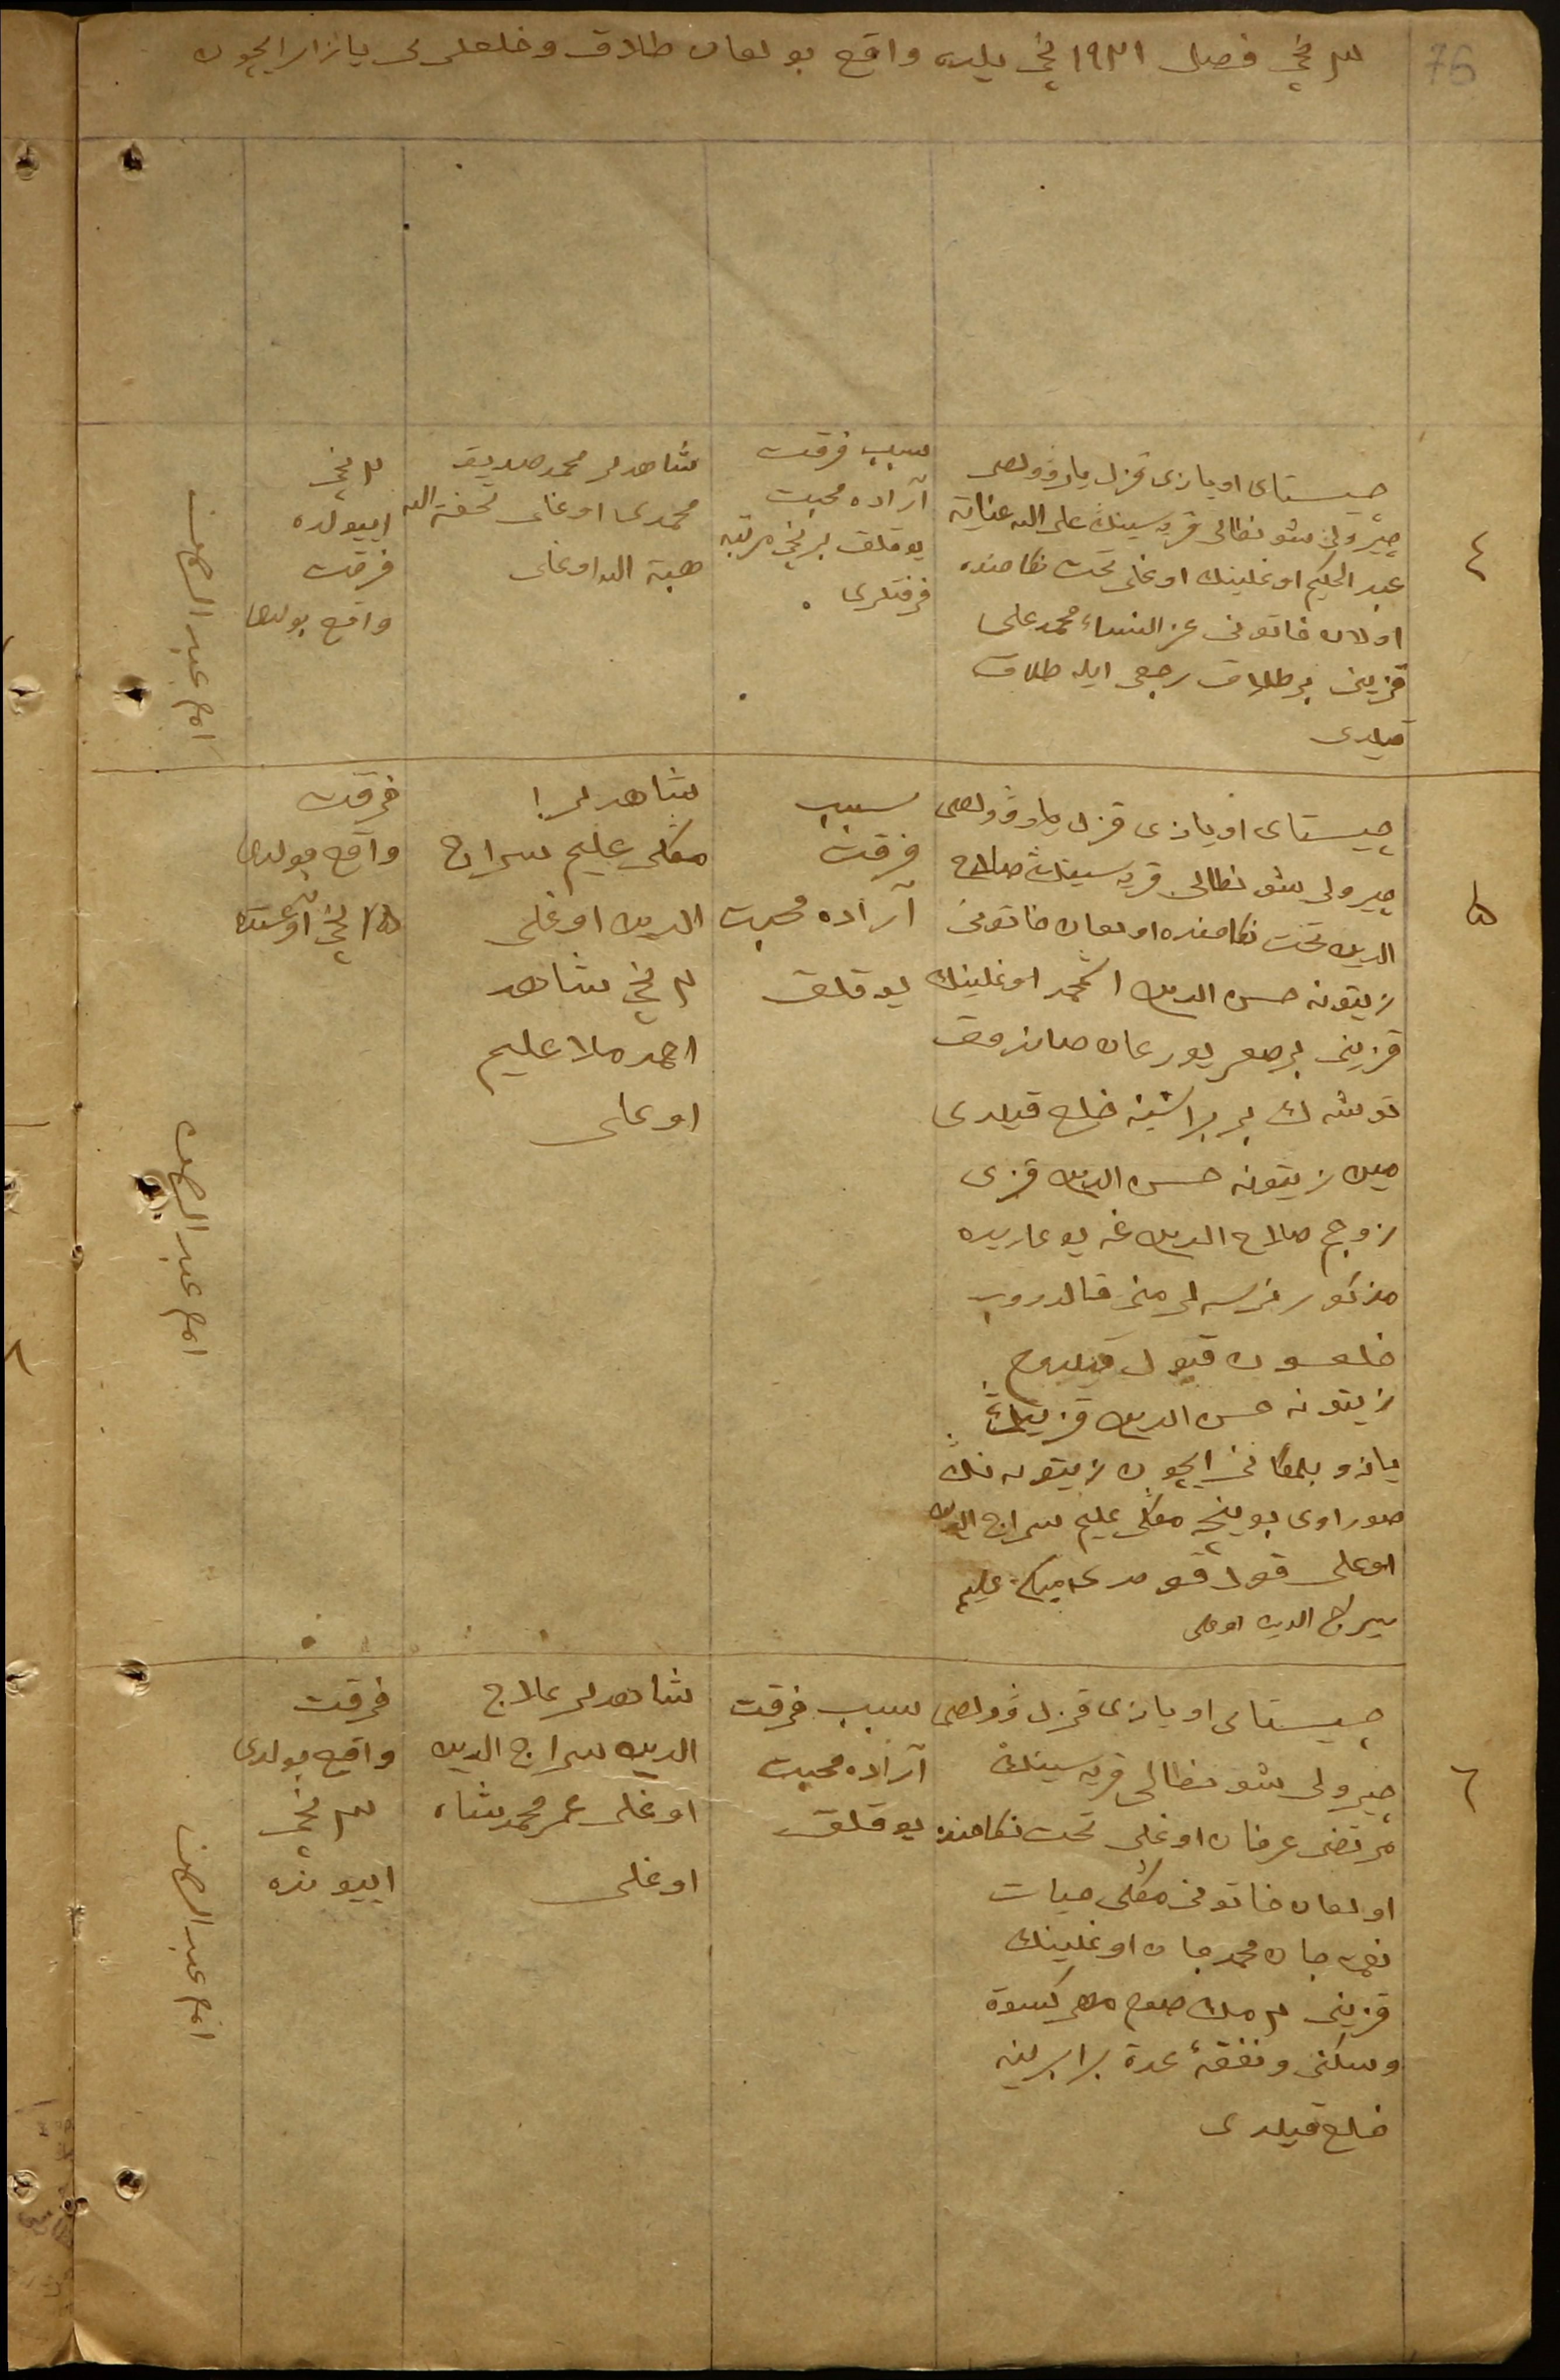 76
٣ نچی فصل ١٩٢١ نچی یلده واقع بولغان طلاق و خلعلرنی یازار ایچون
٤
چیستای اویازی قزل یار وولصی
شونطالی قریه سینڭ
عبد الحکیم اوغلینڭ اوغلی تحت نکاحنده
اولان خاتونی عز النساء محمد علی
قزینی بر طلاق رجعی ایله طلاق
قیلدی
سبب فرقت
آراده محبت
یوقلق برنچی مرتبه
فرقتلری
شاهدلر محمد صدیق
محمدی اوغلی تحفة الله
هبة الله اوغلی
٢ نچی
اییولده
فرقت
واقع بولدی
امام عبد الرحمن
٥
چیستای اویازی قزل یار وولصی
شونطالی قریه سینڭ صلاح
الدین تحت نکاحنده اولغان خاتونی
زیتونه حسن الدین اوغلینڭ
قزینی بر یورغان صاندوق
توشەك بر خلع قیلدی
مین زیتونه حسن الدین قزی
زوجم صلاح الدین غه یوغاریده
مذکور نرسه لرمنی قالدروب
خلعسون قبول قیلدم
زیتونه حسن الدین قزینڭ
یازو بلمگانی ایچون زیتونه نڭ
صوراوی بوینچه علیم سراج الدین
اوغلی قول قویدی علیم
سراج الدین اوغلی
سبب
فرقت
آراده محبت
یوقلق
شاهدلر
علیم سراج
الدین اوغلی
٢ نچی شاهد
احمد ملا علیم
اوغلی
فرقت
واقع بولدی
١٥ نچی آوغستده
امام عبد الرحمن
٦
چیستای اویازی قزل وولصی
شونطالی قریه سینڭ
مرتضی عرفان اوغلی تحت نکاحنده
اولغان خاتونی حیات
جان محمد جان اوغلینڭ
قزینی مهر کسوة
وسکنی ونفقۀ عدة برابرینه
خلع قیلدی
سبب فرقت
آراده محبت
یوقلق
شاهدلر علاج
الدین سراج الدین
اوغلی عمر محمد شاه
اوغلی
فرقت
واقع بولدی
٣ نچی
اییونده
امام عبد الرحمن